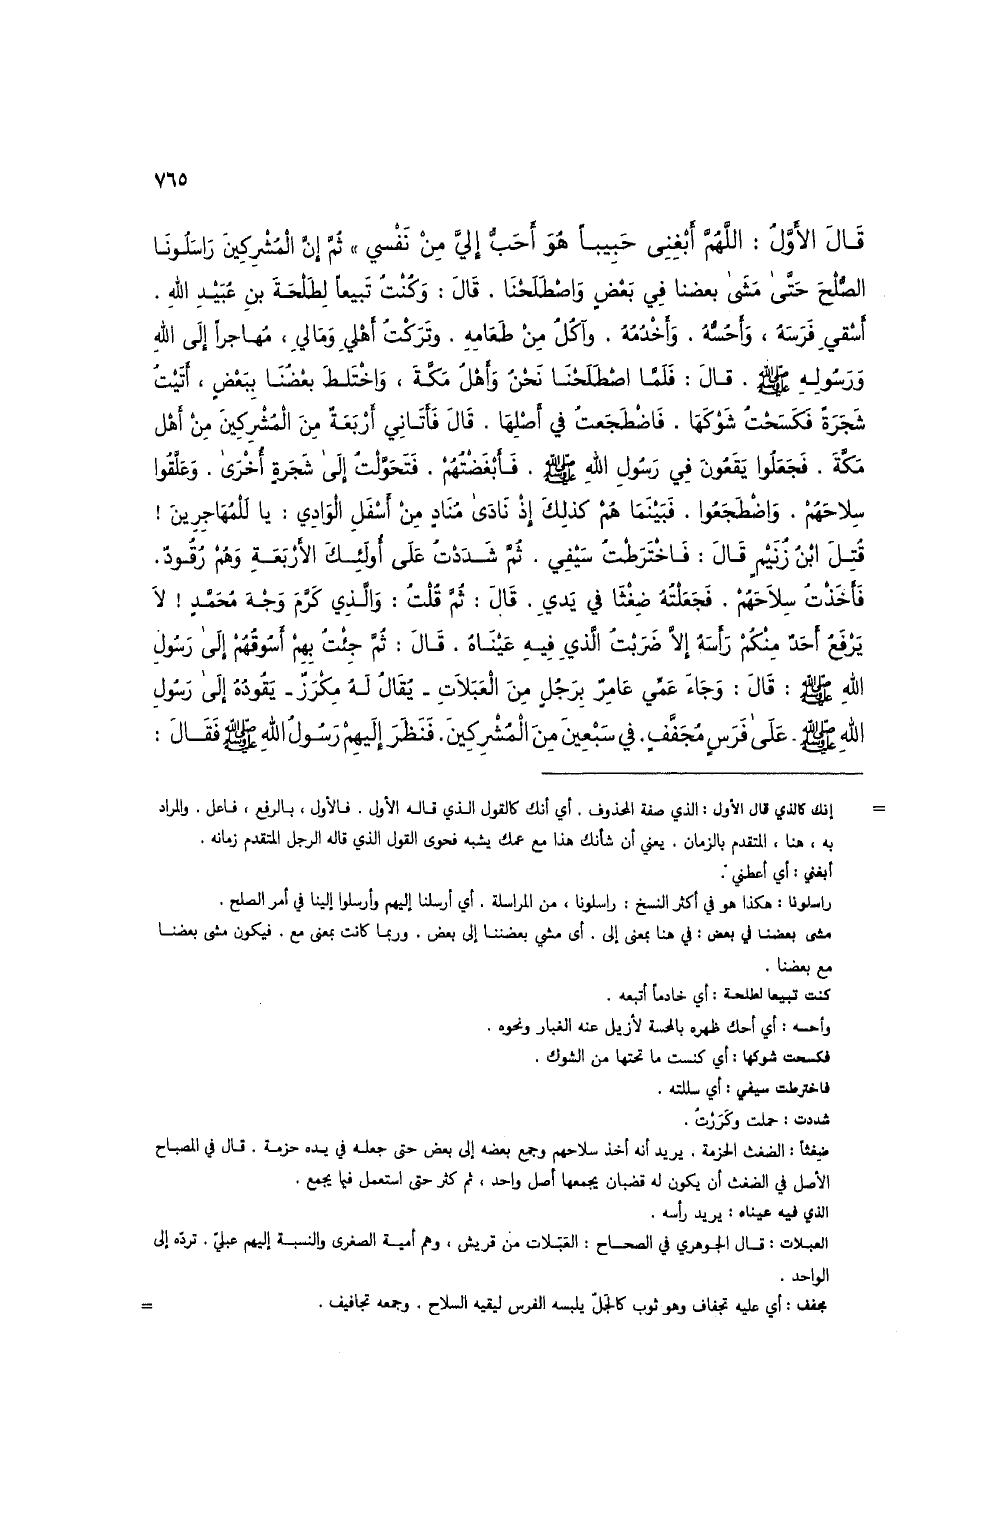 ٧٦٥
قَالَ الأَوَّلُ : اللَّهُمَّ أَبْغِنِى حَبِيباً هُوَ أَحَبُّ إِلَيَّ مِنْ نَفْسِي » ثُمَّ إِنَّ الْمُشْرِكِينَ رَاسَلُونَا
الصُّلْحَ حَتَّىٰ مَشَىٰ بعضنا فِي بَعْضٍ وَاصْطَلَحْنَا . قَالَ : وَكُنْتُ تَبِيعاً لِطَلْحَةَ بنِ عُبَيْدِ اللهِ .
أَسْقِي فَرَسَهُ ، وَأَحُسُّهُ . وَأَخْدُمُهُ . وآكُلُ مِنْ طَعَامِهِ . وتَرَكْتُ أَهْلِي وَمَالِي ، مُهاجراً إِلَى اللهِ
وَرَسُولِهِ ﷺ . قالَ : فَلَمَّا اصْطَلَحْنَا نَحْنُ وَأَهْلُ مَكَّةَ ، وَاخْتَلَطَ بعْضُنَا بِبَعْضٍ ، أَتَيْتُ
شَجَرَةً فَكَسَحْتُ شَوْكَهَا . فَاضْطَجَعتُ فِي أَصْلِهَا . قَالَ فَأَتَانِي أَرْبَعَةٌ مِنَ الْمُشْرِكِينَ مِنْ أَهْلِ
مَكَّةَ . فَجَعَلُوا يَقَعُونَ فِي رَسُولِ اللهِ ﷺ . فَأَبْغَضْتُهُمْ . فَتَحَوَّلْتُ إِلَىٰ شَجَرَةٍ أُخْرَىٰ . وَعَلَّقُوا
سِلاحَهُمْ . وَاضْطَجَعُوا . فَبَيْنَمَا هُمْ كذلِكَ إِذْ نَادَىٰ مُنَادٍ مِنْ أَسْفَلِ الْوَادِي : يا لَلْمُهَاجِرِينَ !
قُتِلَ ابْنُ زُنَيْمٍ قَالَ : فَاخْتَرطْتُ سَيْفِي . ثُمَّ شَدَدْتُ عَلَى أُولَئِكَ الأَرْبَعَةِ وَهُمْ رُقُودٌ.
فَأَخَذْتُ سِلاَحَهُمْ . فَجَعَلْتُهُ ضِغْثًا فِي يَدِي . قَالَ : ثُمَّ قُلْتُ : وَالَّذِي كَرَّمَ وَجْهَ مُحَمَّدٍ ! لاَ
يَرْفَعُ أَحَدٌ مِنْكُمْ رَأْسَهُ إِلاَّ ضَرَبْتُ الَّذي فِيهِ عَيْنَاهُ . قَالَ : ثُمَّ جِئْتُ بِهِمْ أَسُوقُهُمْ إِلَىٰ رَسُولِ
اللهِ ﷺ : قَالَ : وَجَاءَ عَمِّي عَامِرٌ بِرَجُلٍ مِنَ الْعَبَلَاتِ ـ يُقَالُ لَهُ مِكْرَزٌ ـ يَقُودُهُ إِلَىٰ رَسُولِ
اللهِ ﷺ . عَلَىٰ فَرَسٍ مُجَفَّفٍ . فِي سَبْعِينَ مِنَ الْمُشْرِكِينَ. فَنَظَرَ إِلَيهِمْ رَسُولُ اللهِ ﷺ فَقَالَ :
= إنك كالذي قال الأول : الذي صفة المحذوف . أي أنك كالقول الذي قاله الأول . فالأول ، بالرفع ، فاعل . والمراد
به ، هنا ، المتقدم بالزمان . يعني أن شأنك هذا مع عمك يشبه فحوى القول الذي قاله الرجل المتقدم زمانه .
أبغني : أي أعطني .
راسلونا : هكذا هو في أكثر النسخ : راسلونا ، من المراسلة . أي أرسلنا إليهم وأرسلوا إلينا في أمر الصلح .
مشى بعضنا في بعض : في هنا بمعنى إلى . أى مشي بعضننا إلى بعض . وربما كانت بمعنى مع . فيكون مشى بعضنا
مع بعضنا .
كنت تبيعا لطلحة : أي خادماً أتبعه .
وأحسه : أي أحك ظهره بالمحسة لأزيل عنه الغبار ونحوه .
فكسحت شوكها : أي كنست ما تحتها من الشوك .
فاخترطت سيفي : أي سللته .
شددت : حملت وكَرَرْتُ .
ضِغثاً : الضغث الحزمة . يريد أنه أخذ سلاحهم وجمع بعضه إلى بعض حتى جعله في يده حزمة . قال في المصباح
الأصل في الضغث أن يكون له قضبان يجمعها أصل واحد ، ثم كثر حتى استعمل فيما يجمع .
الذي فيه عيناه : يريد رأسه .
العبلات : قال الجوهري في الصحاح : العَبَلات من قريش ، وهم أمية الصغرى والنسبة إليهم عبليّ . تردّه إلى
الواحد .
مجفف : أي عليه تجفاف وهو ثوب كالجُلّ يلبسه الفرس ليقيه السلاح . وجمعه تجافيف . =